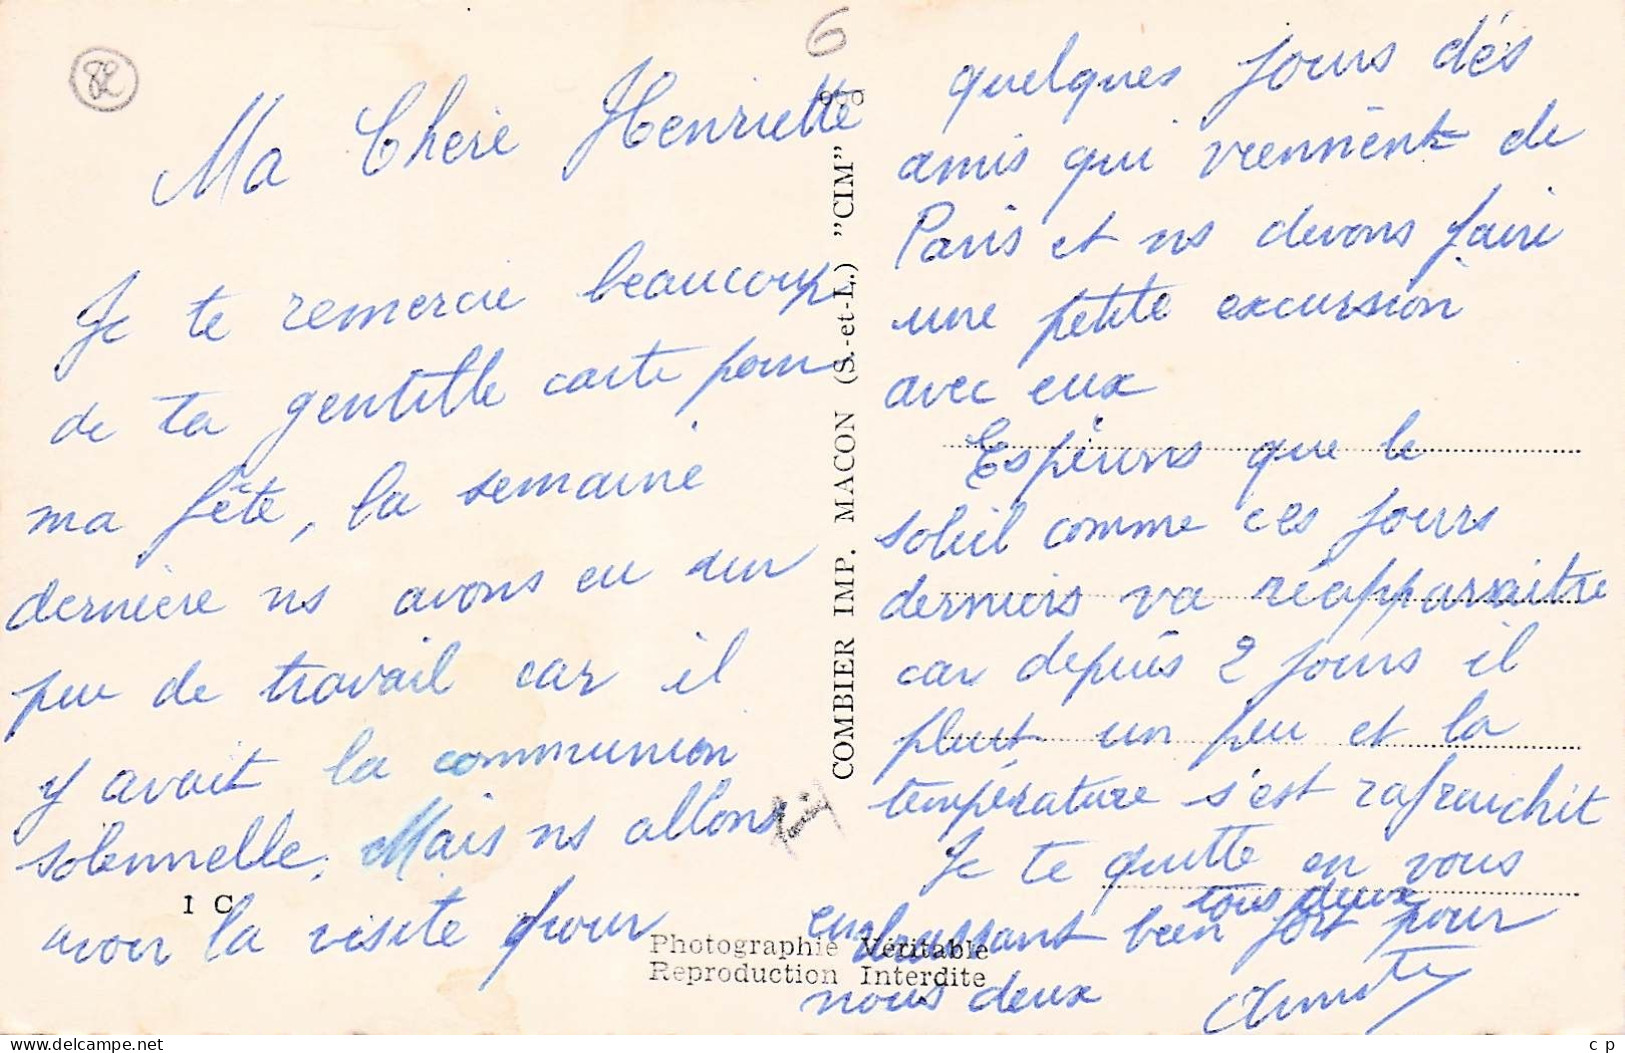 82
6
Ma Chère Henriette
Je te remercie beaucoup
de ta gentille carte pour
ma fête, la semaine
dernière ns avons eu un
peu de travail car il
y avait la communion
solennelle. Mais ns allons
avoir la visite pour
quelques jours dés
amis qui viennent de
Paris et ns devons faire
une petite excursion
avec eux
Espérons que le
soleil comme ces jours
derniers va réapparraitre
car depuis 2 jours il
pleut un peu et la
température s'est rafraichit
Je te quitte en vous
tous deux
embrassant bien fort pour
nous deux
COMBIER IMP. MACON (S.-et-L.) "CIM"
1 C
Photographie Véritable
Reproduction Interdite
delcampe.net
c p